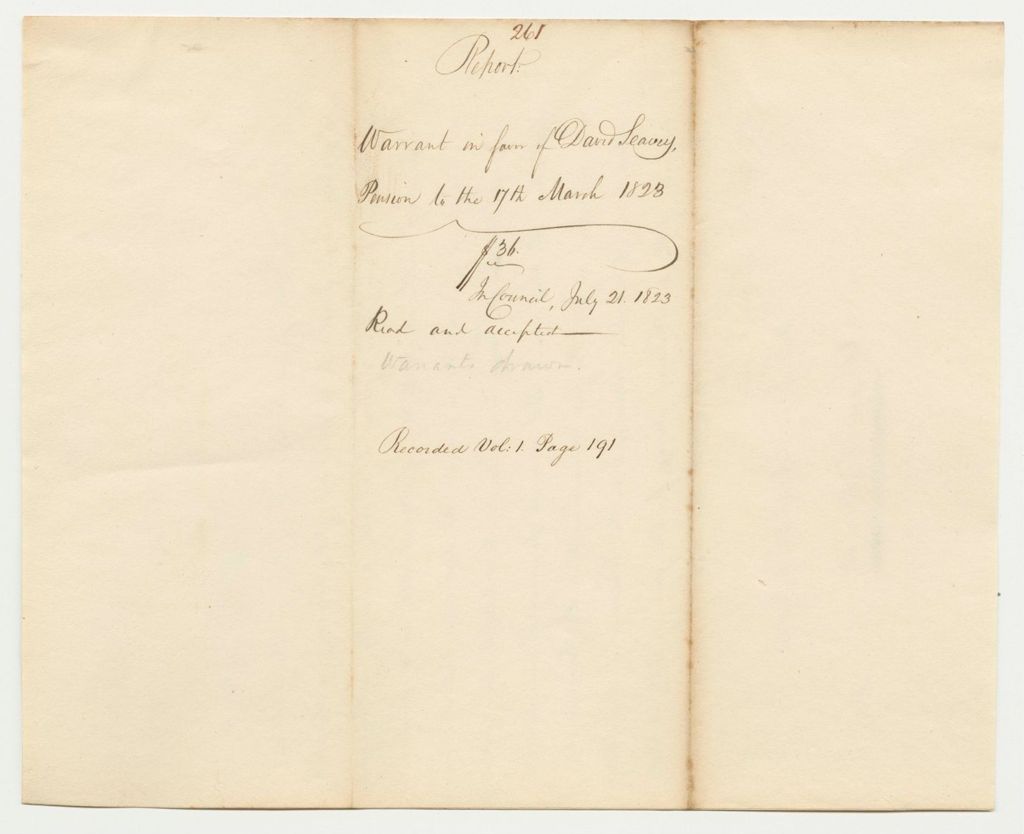 261
Report.
Warrant in favor of David Seavey,
Pension to the 17th March 1823
$36.
In Council, July 21. 1823
Read and accepted
Warrants drawn.
Recorded Vol: 1. Page 191